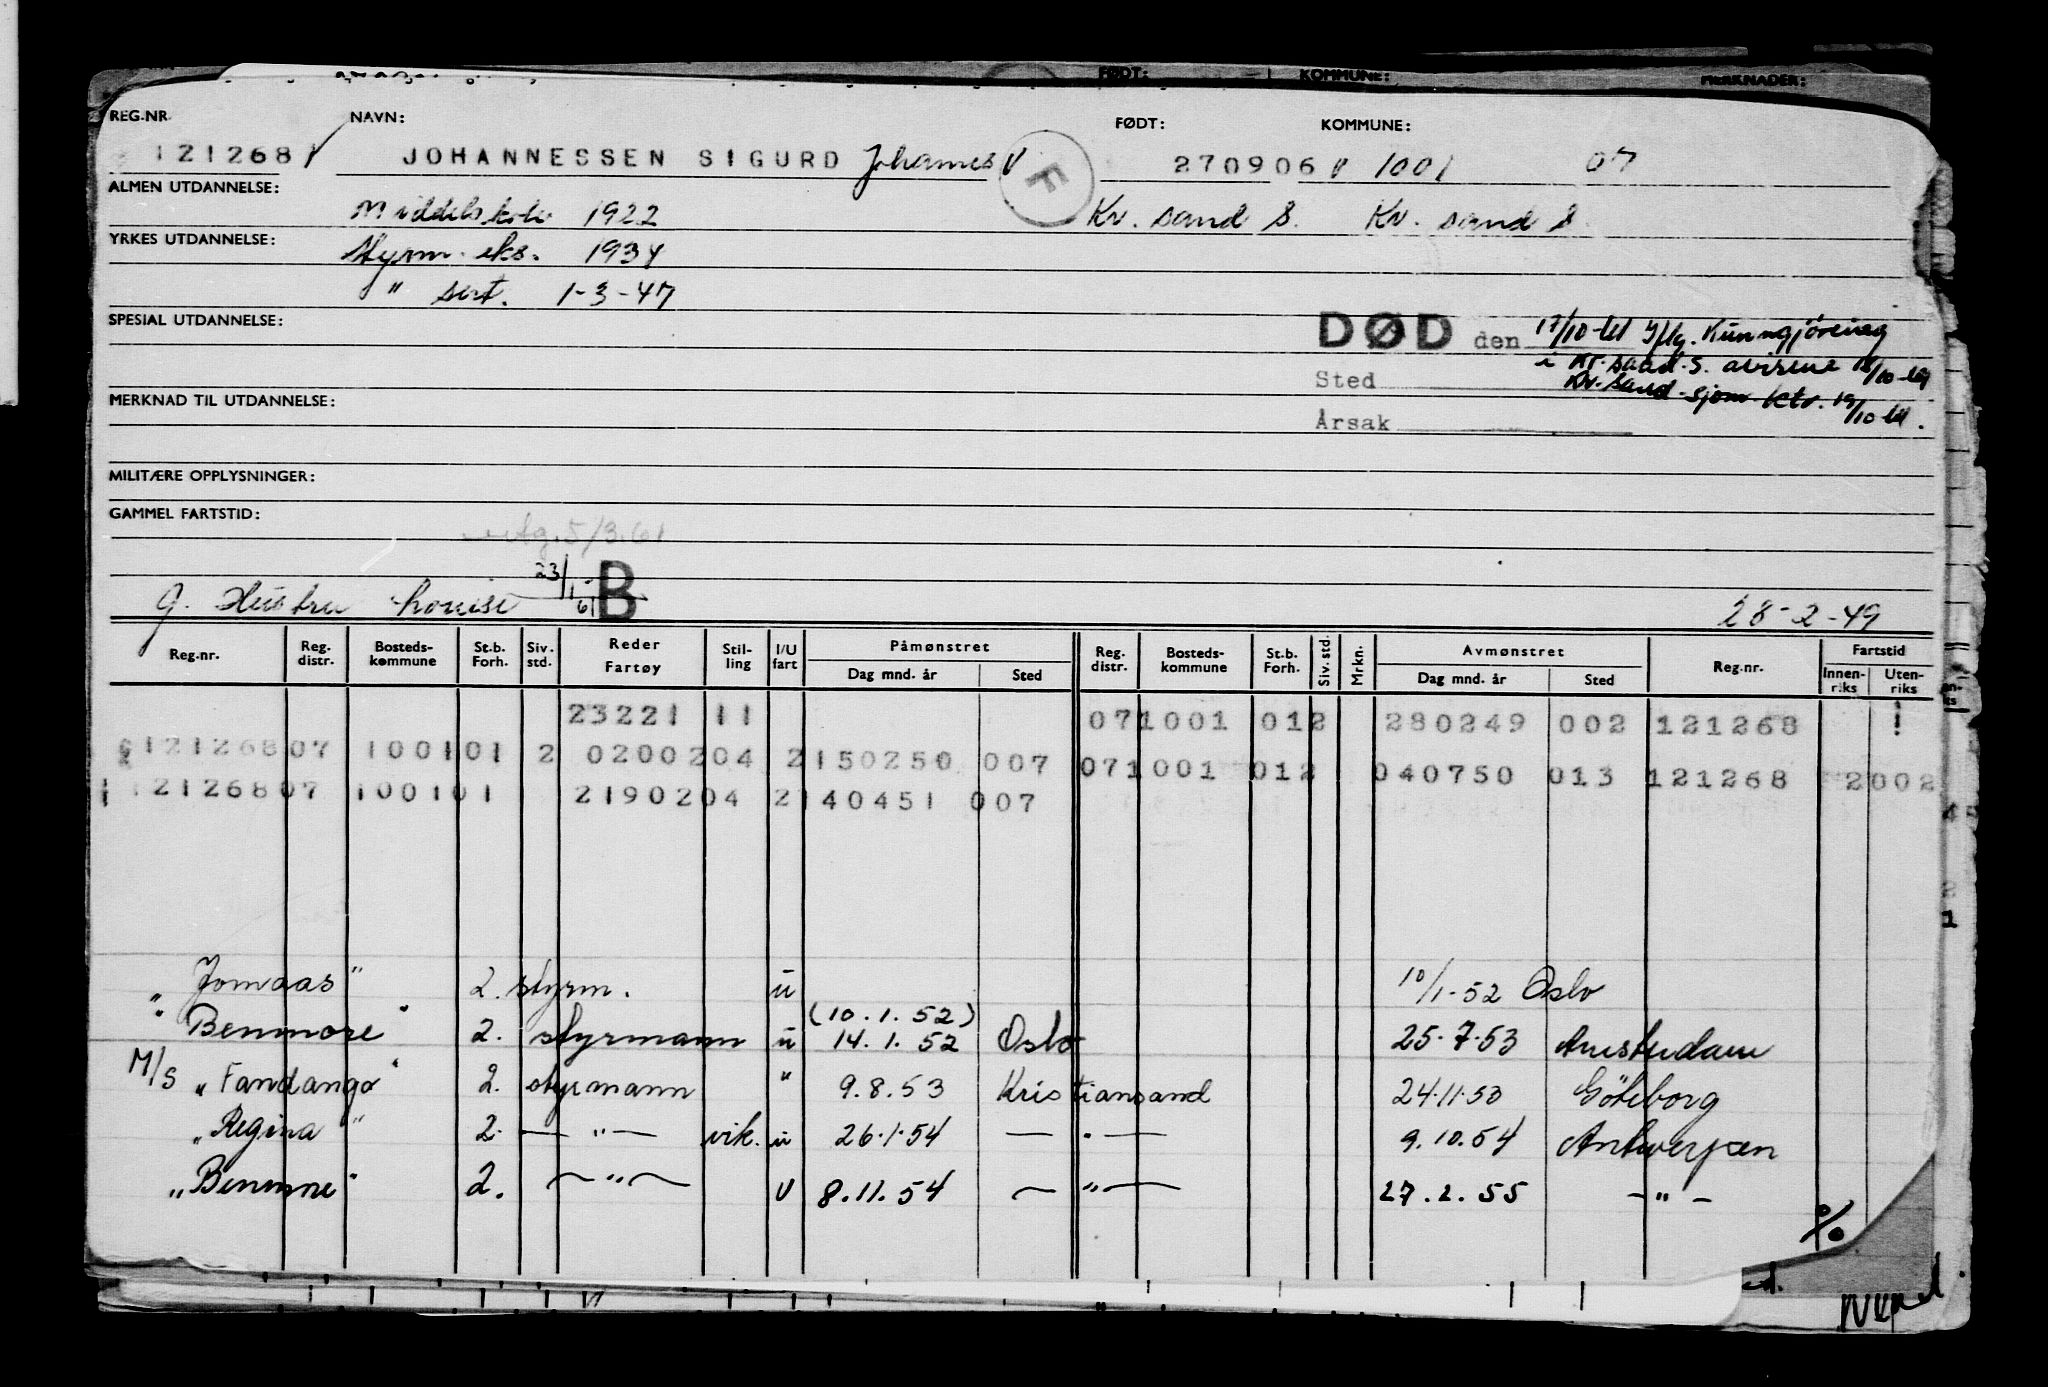 FØDT: KOMMUNE: MERKNADER:
REG.NR NAVN: FØDT: KOMMUNE:
121268 V JOHANNESSEN SIGURD Johannes V F 270906 V 1001 07
ALMEN UTDANNELSE: Middelskole 1922 Kr. sand S. Kr. sand S
YRKES UTDANNELSE: Styrm. eks. 1934
" sert. 1-3-47
SPESIAL UTDANNELSE:
DØD den 17/10-61 Iflg. Kunngjöring
i Kr.sand.S. avisene 18/10-61
Sted Kr.sand. sjöm. ktr. 19/10 61.
MERKNAD TIL UTDANNELSE:
Årsak
MILITÆRE OPPLYSNINGER:
GAMMEL FARTSTID:
5/3.61
23/1 61 B
g. Hustru Louise 28-2-49
Reg.nr. Reg. distr. Bosteds-kommune St.b. Forh. Siv. std. Reder Fartøy Stil-ling I/U fart Påmønstret Dag mnd. år Sted Reg. distr. Bosteds-kommune St.b. Forh. Siv. std. Mrkn. Avmønstret Dag mnd. år Sted Reg.nr. Fartstid Innen-riks Uten-riks
23221 11 071001 012 280249 002 121268 1
12126807 100101 2 0200204 2150250 007 071001 012 040750 013 121268 2002
12126807 100101 2190204 2140451 007
"Jomaas" 2. styrm. u 10/1-52 Oslo
(10.1.52)
"Benmore" 2. styrmann u 14.1.52 Oslo 25.7.53 Amsterdam
M/S "Fandango" 2. styrmann " 9.8.53 Kristiansand 24.11.53 Göteborg
"Regina" 2. — " — vik. u 26.1.54 — " — 9.10.54 Antwerpen
"Benmore" 2. — " — U 8.11.54 — " — 27.2.55 — " —
%